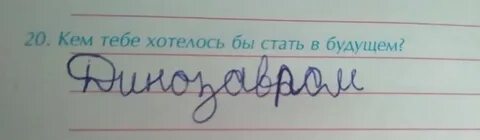 20. Кем тебе хотелось бы стать в будущем?
Динозавром